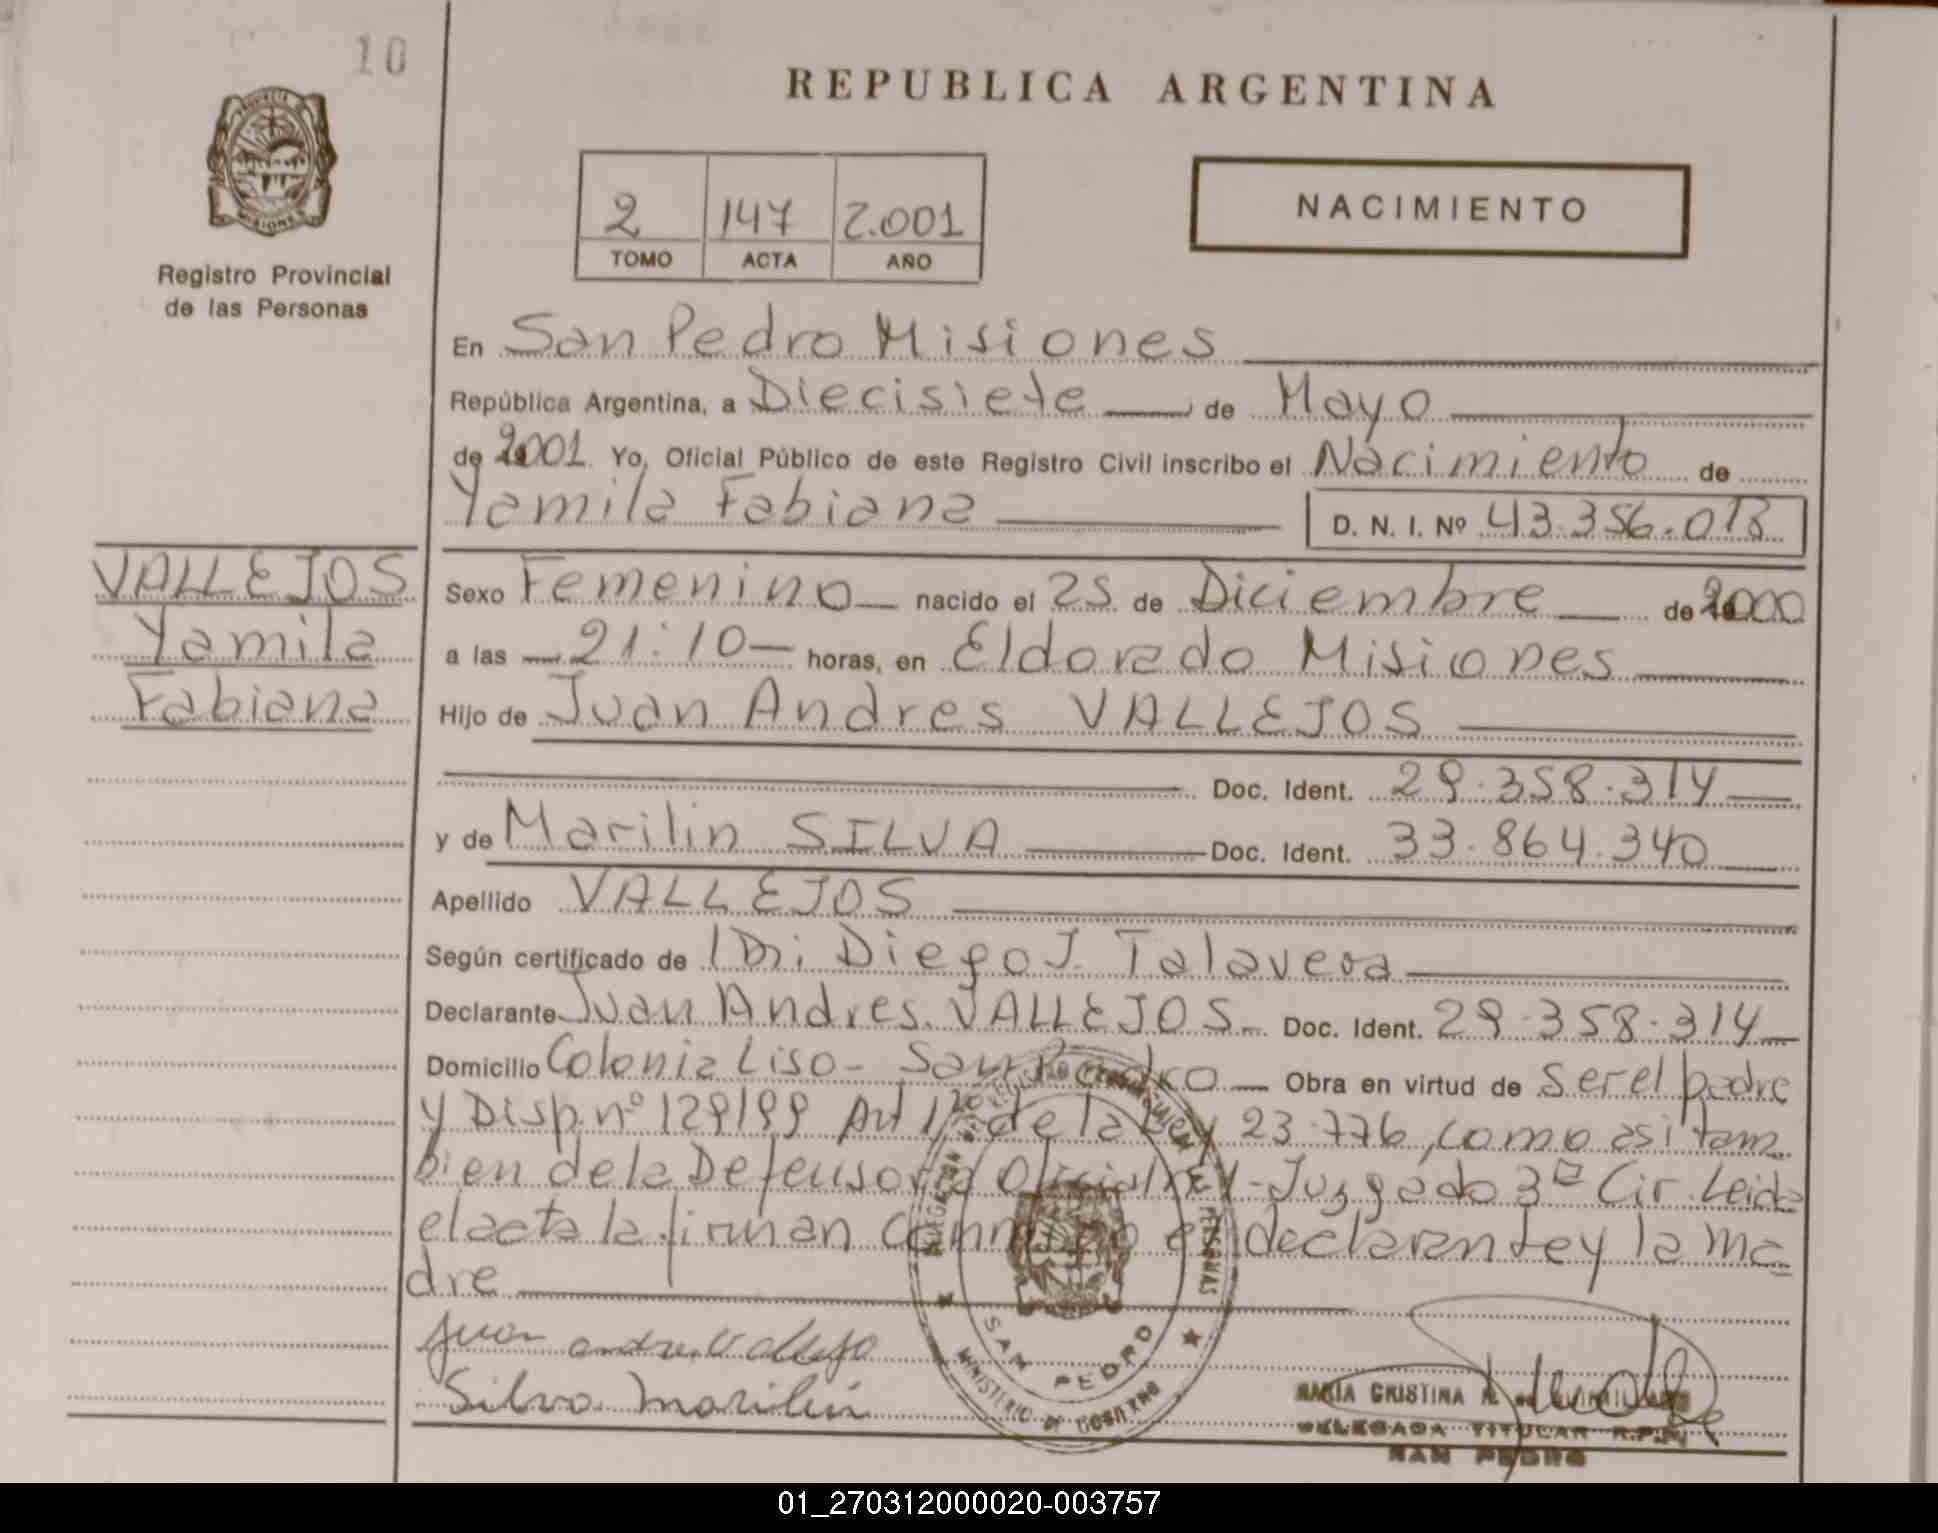 10
REPUBLICA ARGENTINA
PROVINCIA DE MISIONES
Registro Provincial
de las Personas
2 147 2.001
TOMO ACTA AÑO
NACIMIENTO
En San Pedro Misiones
República Argentina, a Diecisiete de Mayo
de 2001. Yo, Oficial Público de este Registro Civil inscribo el Nacimiento de
Yamila Fabiana D. N. I. Nº 43.356.013
VALLEJOS
Yamila
Fabiana
Sexo Femenino nacido el 25 de Diciembre de 2000
a las 21:10 horas, en Eldorado Misiones
Hijo de Juan Andres VALLEJOS
Doc. Ident. 29.358.314
y de Marilin SILVA Doc. Ident. 33.864.340
Apellido VALLEJOS
Según certificado de Dr: Diego J. Talavera
Declarante Juan Andres VALLEJOS Doc. Ident. 29.358.314
Domicilio Colonia Liso - San Pedro Obra en virtud de Ser el padre
y Disp. nº 129/99 Art 1º de la Ley 23.776, como asi tam
bien de la Defensoria Oficial Juzgado 3ª Cir. Leida
el acta la firman conmigo el declarante y la ma
dre
Juan andres Vallejo
Silva Marilin
SAN PEDRO
MINISTERIO DE GOBIERNO
MARIA CRISTINA
DELEGADA TITULAR R.P.P.
SAN PEDRO
01_270312000020-003757